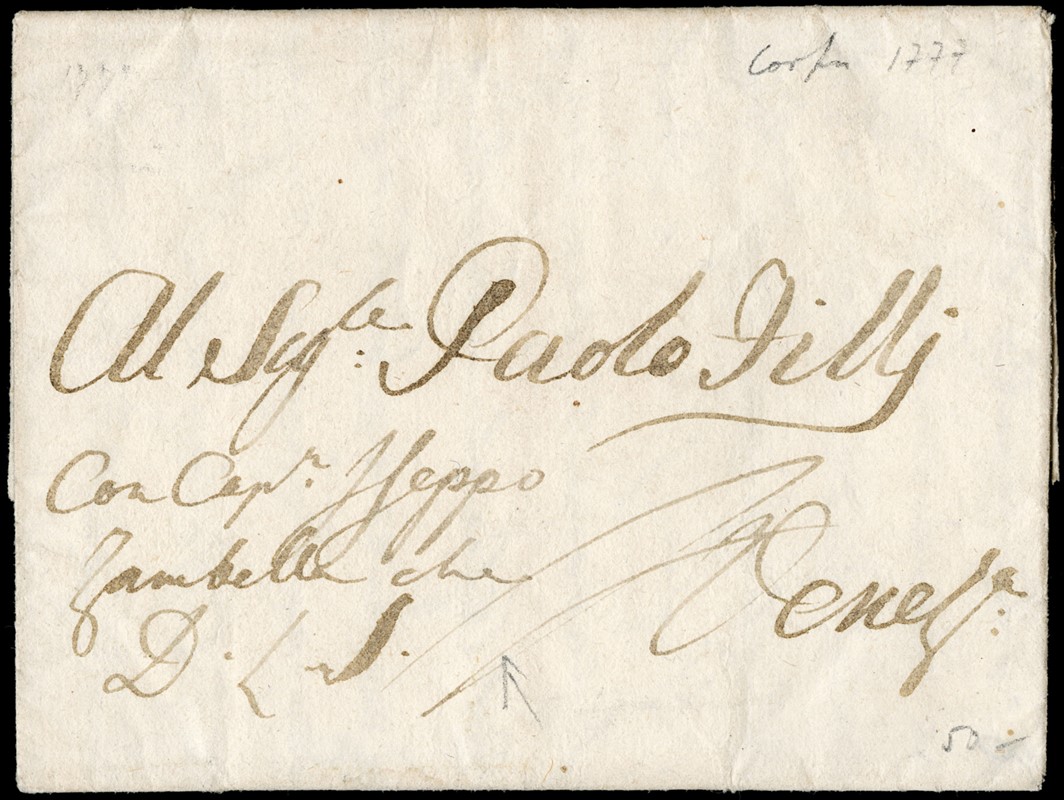 Corfu 1777
Al Sigle: Paolo Filli
Con Capn. Iseppo
Zambella che
D. L. S.
Veneza:
50 -